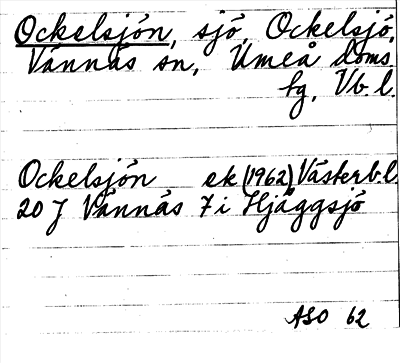 Ockelsjön, sjö, Ockelsjö,
Vännäs sn, Umeå doms.
hg, Vb.l.
Ockelsjön ek (1962) Västerb.l.
20 J Vännäs 7 i Hjåggsjö
ASO 62